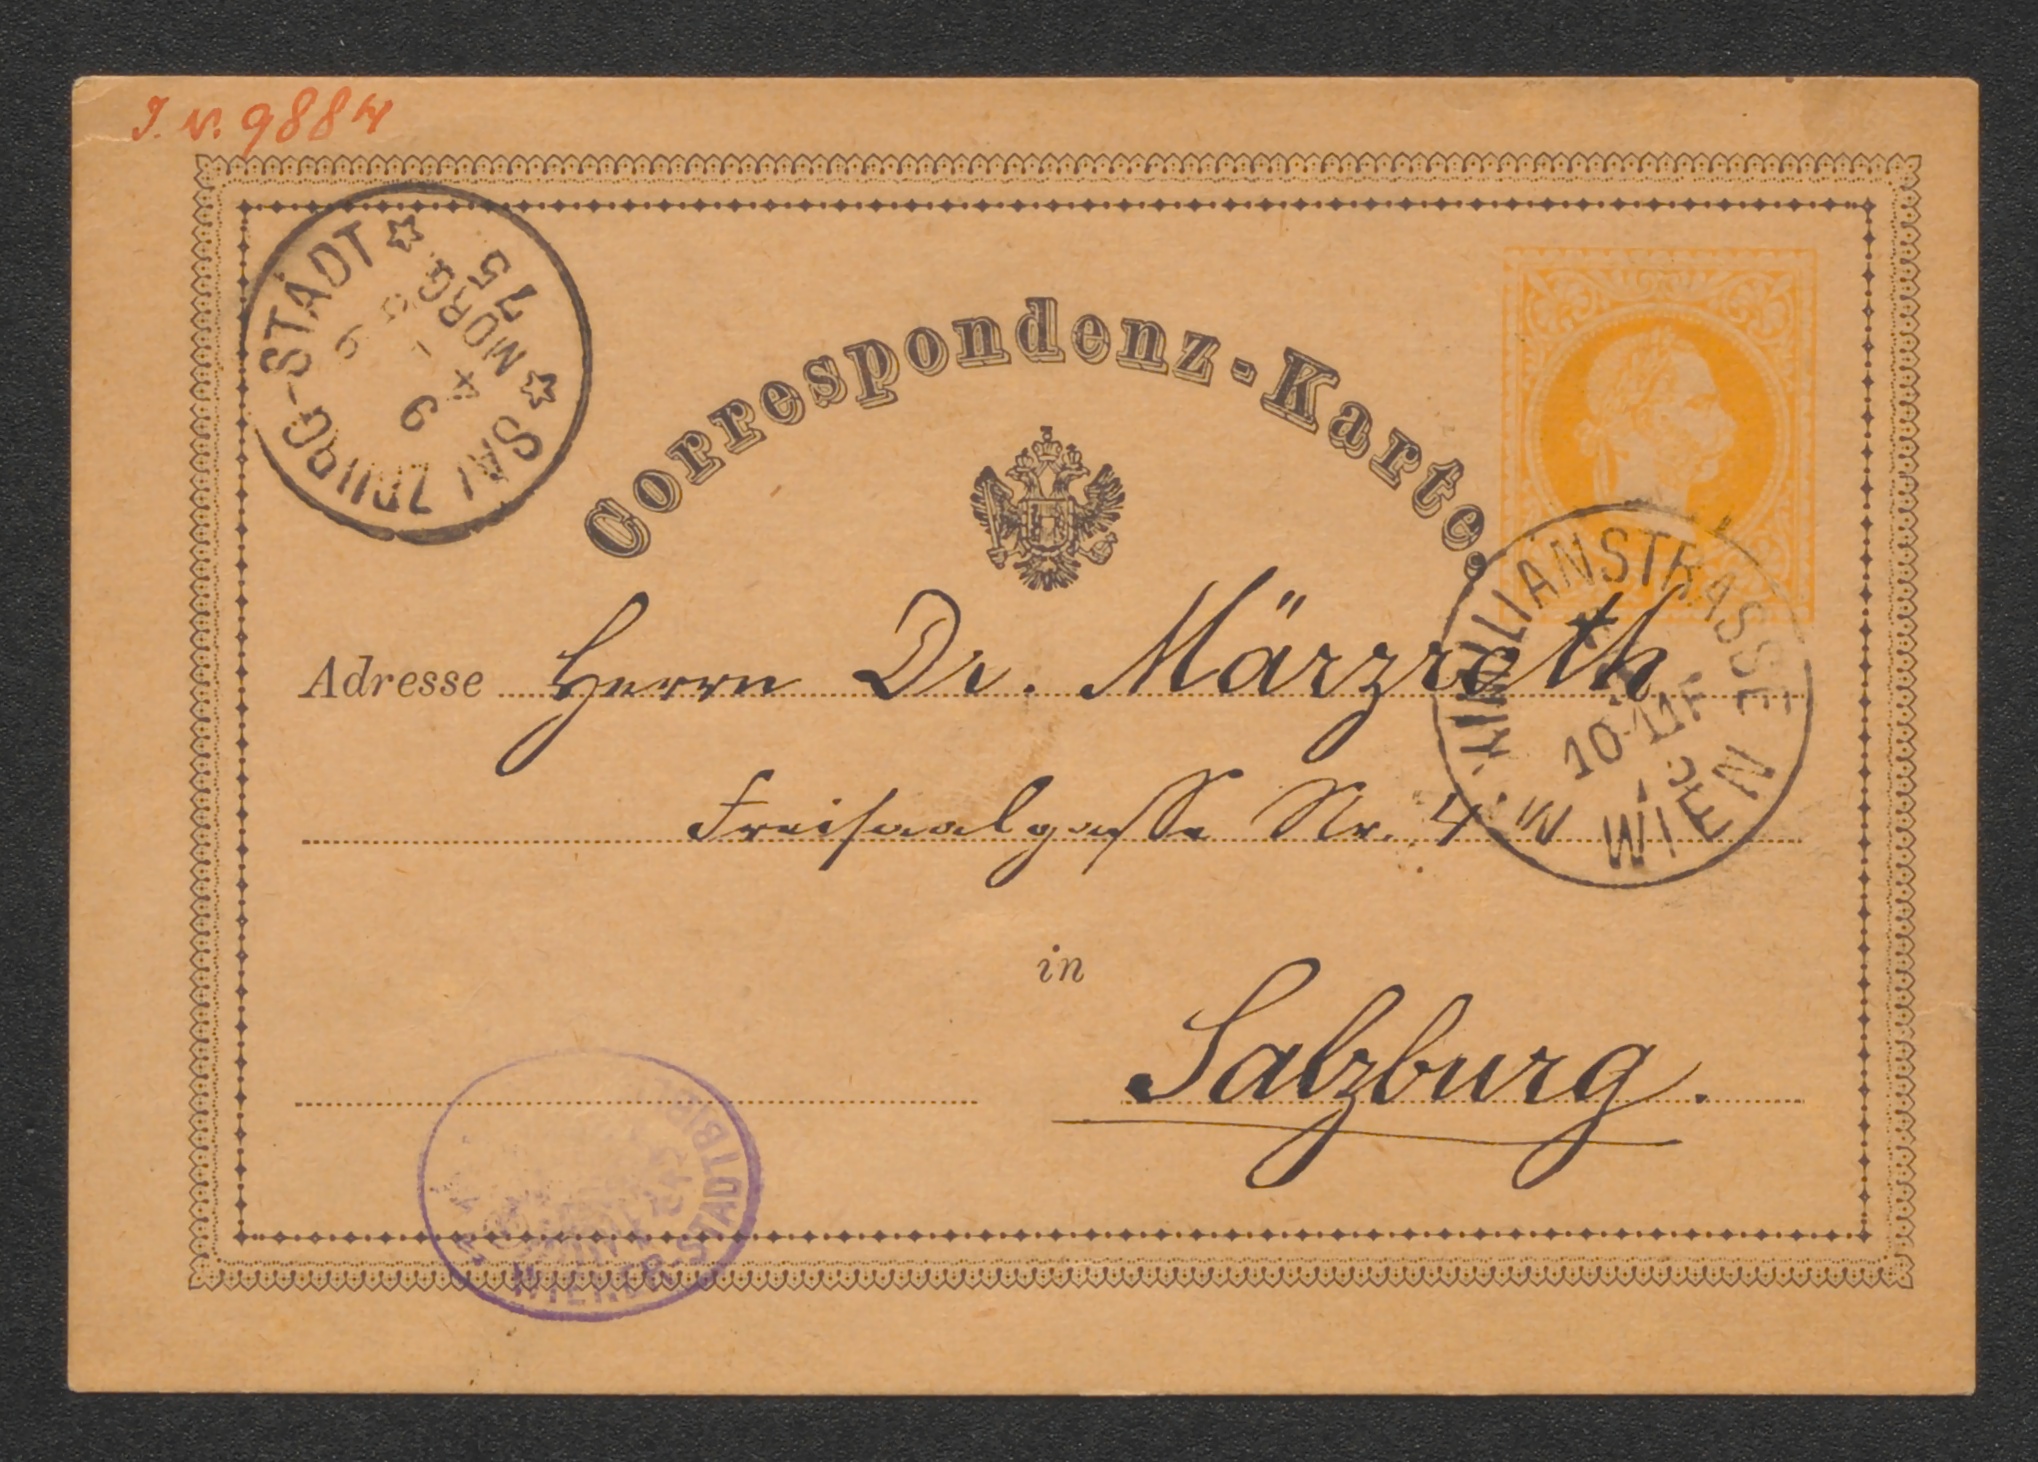 J. N. 9884
SALZBURG-STADT
9 4
75
MORG.
Correspondenz-Karte.
MAXIMILIANSTRASSE
10-11 F
WIEN
Adresse Herrn Dr. Märzroth
Freisaalgasse Nr. 4
in
Salzburg.
WIENER STADTBI